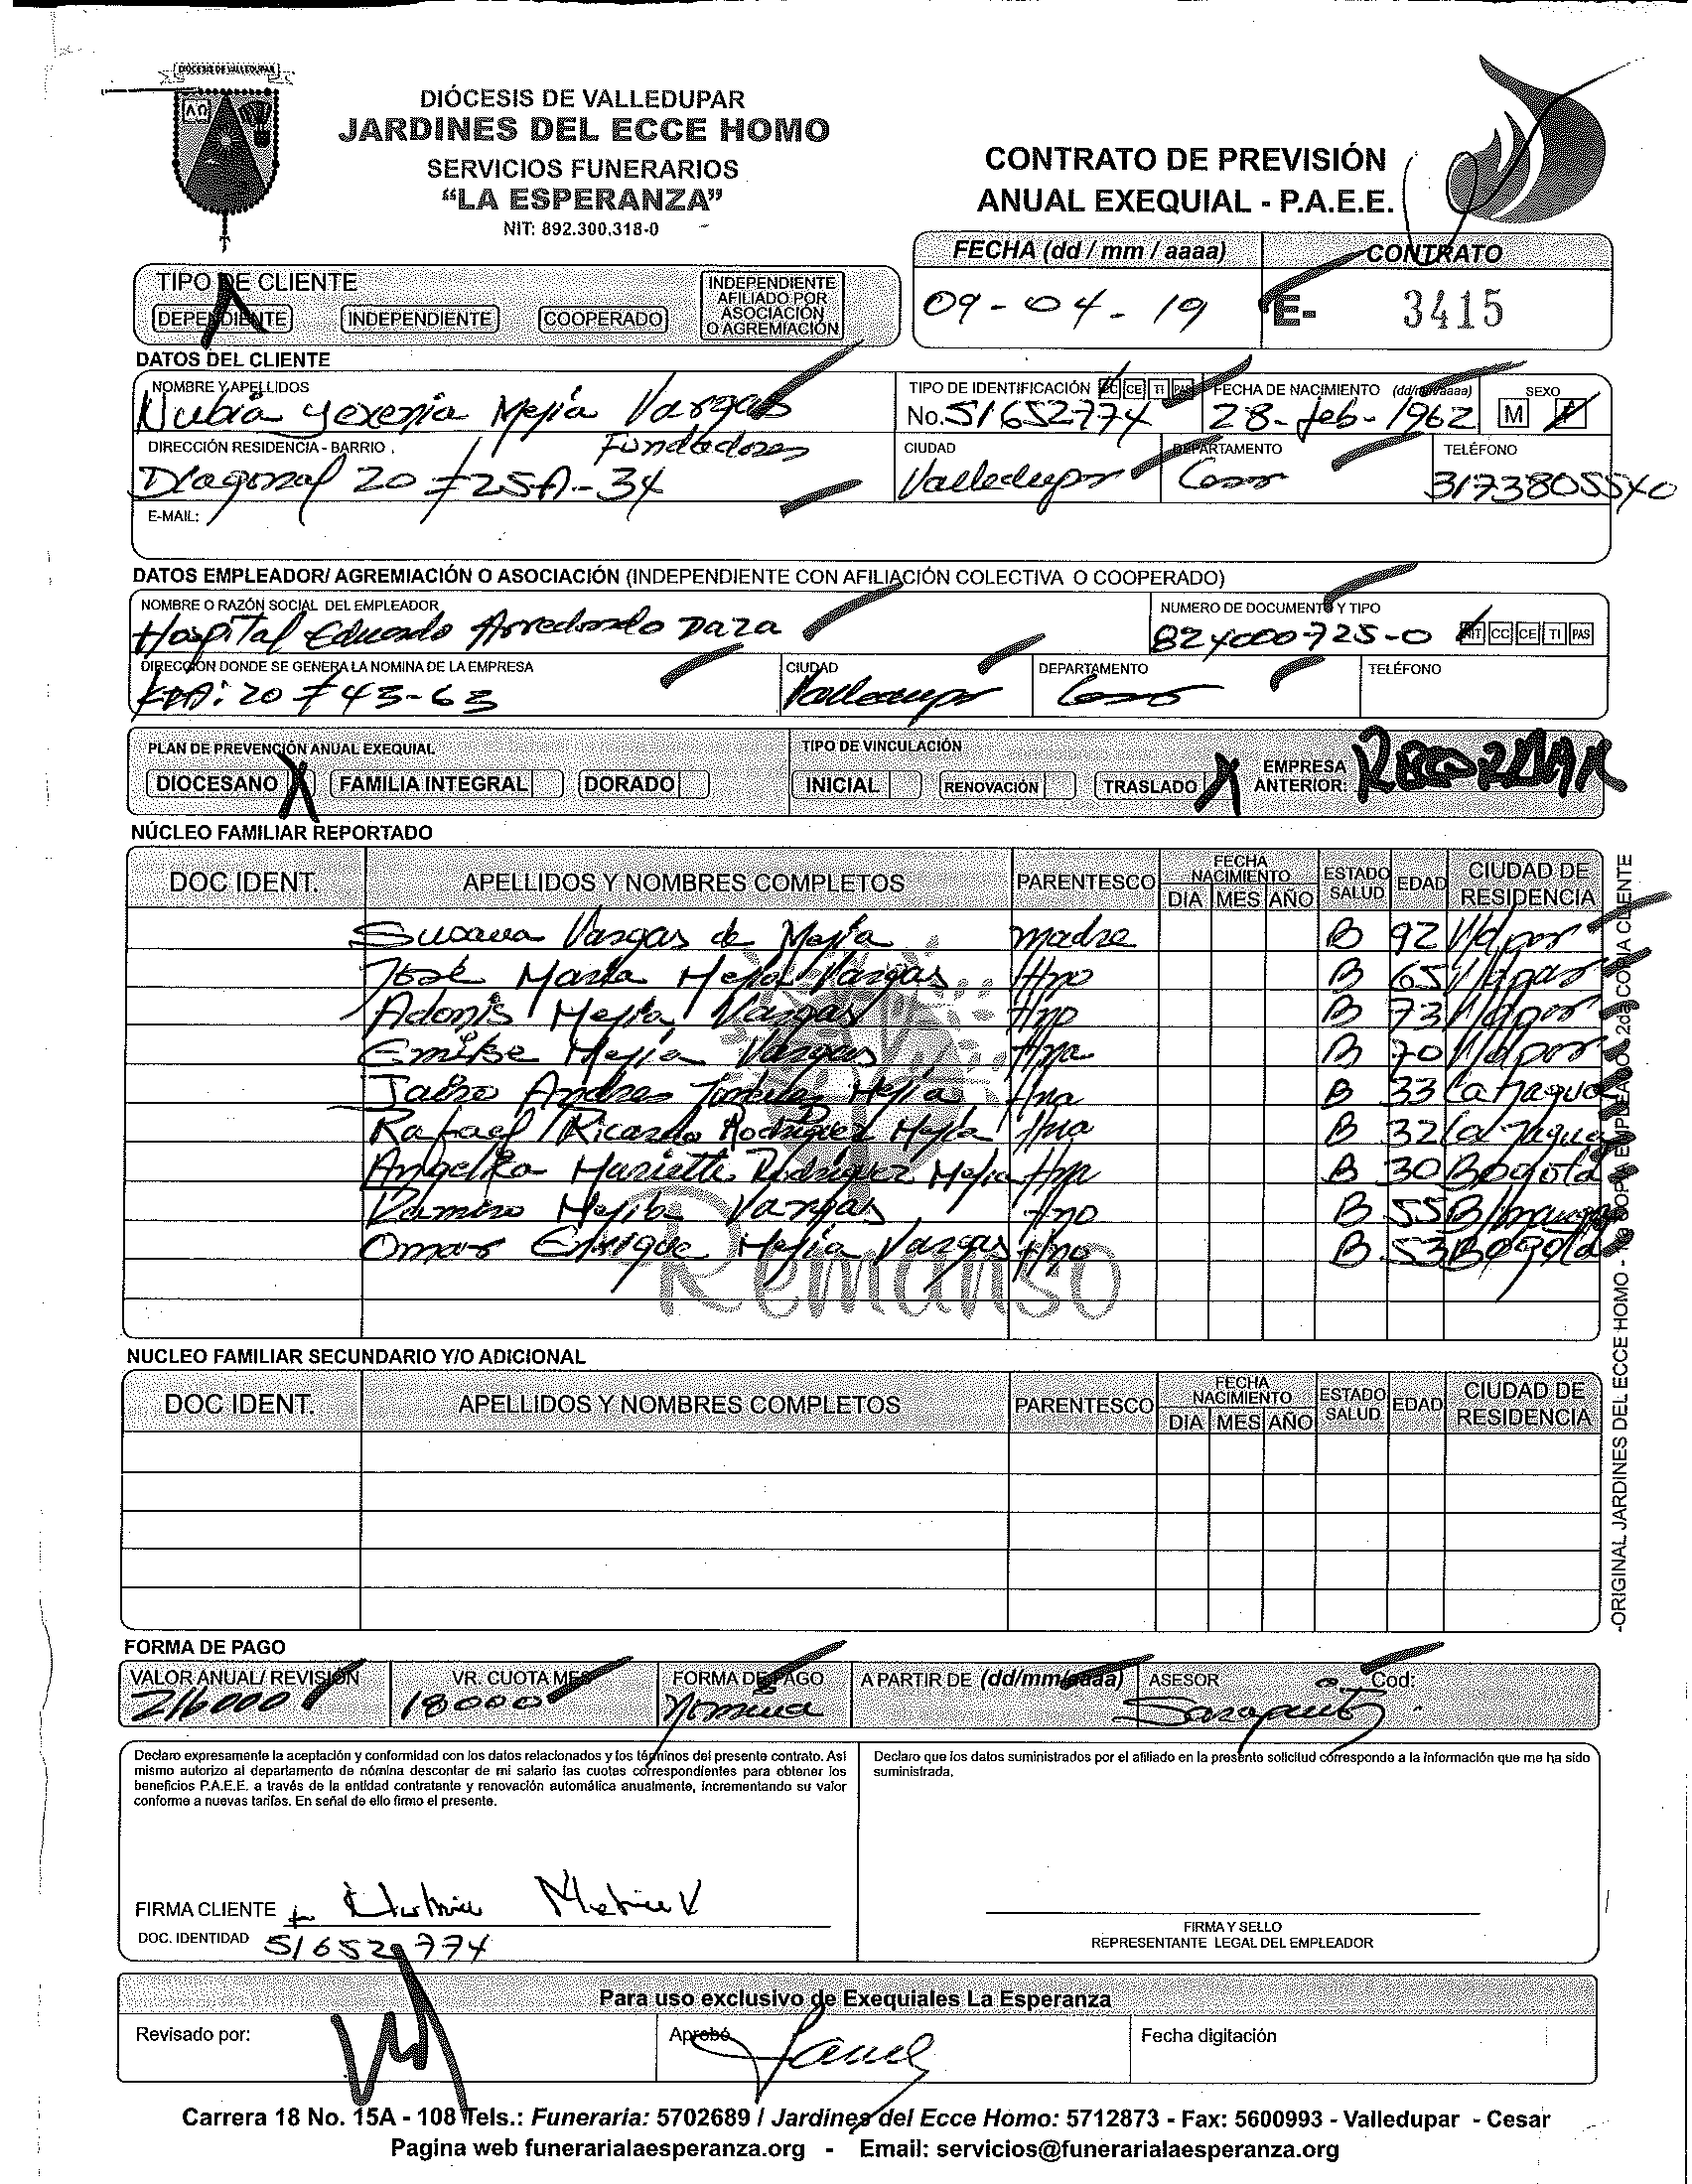 DIÓCESIS DE VALLEDUPAR
DIÓCESIS DE VALLEDUPAR
JARDINES DEL ECCE HOMO
SERVICIOS FUNERARIOS
“LA ESPERANZA”
NIT: 892.300.318-0
CONTRATO DE PREVISIÓN
ANUAL EXEQUIAL - P.A.E.E.
FECHA (dd / mm / aaaa) CONTRATO
09-04-19 E- 3415
TIPO DE CLIENTE
DEPENDIENTE INDEPENDIENTE COOPERADO INDEPENDIENTE AFILIADO POR ASOCIACIÓN O AGREMIACIÓN
DATOS DEL CLIENTE
NOMBRE Y APELLIDOS TIPO DE IDENTIFICACIÓN CC CE TI PAS FECHA DE NACIMIENTO (dd/mm/aaaa) SEXO
Nubia Yexenia Mejía Vargas No. 51652774 28-feb-1962 M F
DIRECCIÓN RESIDENCIA - BARRIO Fundadores CIUDAD DEPARTAMENTO TELÉFONO
Diagonal 20 #25A-34 Valledupar Cesar 3173805540
E-MAIL:
DATOS EMPLEADOR/ AGREMIACIÓN O ASOCIACIÓN (INDEPENDIENTE CON AFILIACIÓN COLECTIVA O COOPERADO)
NOMBRE O RAZÓN SOCIAL DEL EMPLEADOR NUMERO DE DOCUMENTO Y TIPO
Hospital Eduardo Arredondo Daza 824000725-0 NIT CC CE TI PAS
DIRECCIÓN DONDE SE GENERA LA NOMINA DE LA EMPRESA CIUDAD DEPARTAMENTO TELÉFONO
KRA: 20 #43-63 Valledupar Cesar
PLAN DE PREVENCIÓN ANUAL EXEQUIAL TIPO DE VINCULACIÓN
DIOCESANO X FAMILIA INTEGRAL DORADO INICIAL RENOVACIÓN TRASLADO X EMPRESA ANTERIOR:
NÚCLEO FAMILIAR REPORTADO
DOC IDENT. APELLIDOS Y NOMBRES COMPLETOS PARENTESCO FECHA NACIMIENTO DIA MES AÑO ESTADO SALUD EDAD CIUDAD DE RESIDENCIA
Susana Vargas de Mejía madre B 92 V/dpar
José María Mejía Vargas Hno B 65 V/dpar
Adonis Mejía Vargas Hno B 73 V/dpar
Mejía Vargas Hna B 70 V/dpar
Jairo Andres Mejía B 33 La Jagua
Rafael Ricardo Rodríguez Mejía B 32 La Jagua
Angelica Rodríguez Mejía B 30 Bogotá
Ramiro Mejía Vargas Hno B 55 B/manga
Omar Enrique Mejía Vargas Hno B 53 Bogotá
Remanso
NUCLEO FAMILIAR SECUNDARIO Y/O ADICIONAL
DOC IDENT. APELLIDOS Y NOMBRES COMPLETOS PARENTESCO FECHA NACIMIENTO DIA MES AÑO ESTADO SALUD EDAD CIUDAD DE RESIDENCIA
FORMA DE PAGO
VALOR ANUAL/ REVISIÓN VR. CUOTA MES FORMA DE PAGO A PARTIR DE (dd/mm/aaaa) ASESOR Cod:
216000 18000 Nomina
Declaro expresamente la aceptación y conformidad con los datos relacionados y los términos del presente contrato. Así
mismo autorizo al departamento de nómina descontar de mi salario las cuotas correspondientes para obtener los
beneficios P.A.E.E. a través de la entidad contratante y renovación automática anualmente, incrementando su valor
conforme a nuevas tarifas. En señal de ello firmo el presente.
Declaro que los datos suministrados por el afiliado en la presente solicitud corresponde a la información que me ha sido
suministrada.
FIRMA CLIENTE Nubia Mejia V
DOC. IDENTIDAD 51652774
FIRMA Y SELLO
REPRESENTANTE LEGAL DEL EMPLEADOR
Para uso exclusivo de Exequiales La Esperanza
Revisado por: Aprobó Fecha digitación
Carrera 18 No. 15A - 108 Tels.: Funeraria: 5702689 / Jardines del Ecce Homo: 5712873 - Fax: 5600993 - Valledupar - Cesar
Pagina web funerarialaesperanza.org - Email: servicios@funerarialaesperanza.org
-ORIGINAL JARDINES DEL ECCE HOMO - COPIA EMPLEADOR 2da COPIA CLIENTE